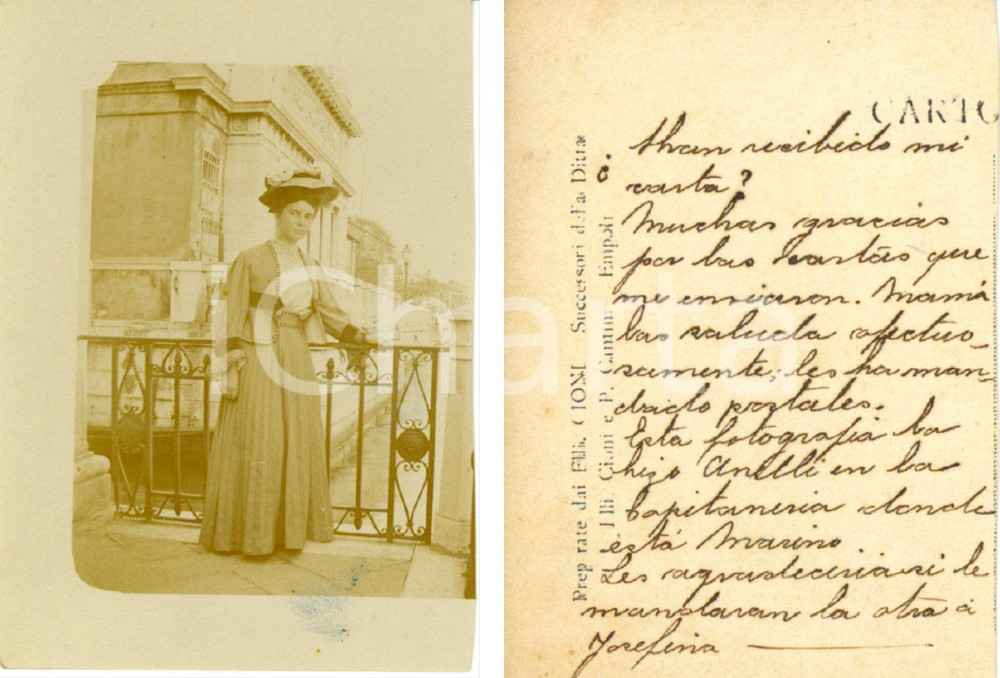 iCharta
CARTO
¿ Han recibido mi
carta?
Muchas gracias
por las cartas que
me enviaron. Mamá
las saluda afectuo-
samente; les ha man-
dado postales.
Esta fotografía la
hizo Anelli en la
Capitaneria donde
está Marino
Les agradeceria si le
mandaran la otra á
Josefina
Preparate dai Flli. CIONI, Successori della Ditta
Flli. Cioni e P. Cantini Empoli